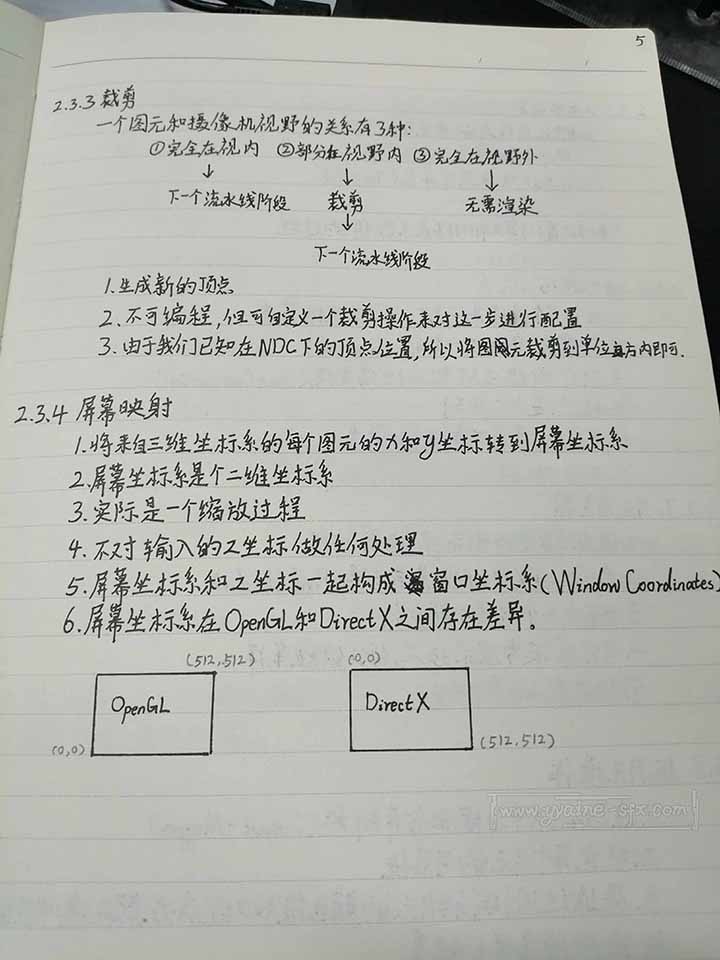 5
2.3.3 裁剪
一个图元和摄像机视野的关系有3种:
①完全在视内 ②部分在视野内 ③完全在视野外
↓ ↓ ↓
下一个流水线阶段 裁剪 无需渲染
↓
下一个流水线阶段
1.生成新的顶点
2.不可编程,但可自定义一个裁剪操作来对这一步进行配置
3.由于我们已知在NDC下的顶点位置,所以将图元裁剪到单位立方内即可.
2.3.4 屏幕映射
1.将来自三维坐标系的每个图元的x和y坐标转到屏幕坐标系
2.屏幕坐标系是个二维坐标系
3.实际是一个缩放过程
4.不对输入的Z坐标做任何处理
5.屏幕坐标系和Z坐标一起构成窗口坐标系(Window Coordinates)
6.屏幕坐标系在OpenGL和DirectX之间存在差异。
(512,512) (0,0)
OpenGL DirectX
(0,0) (512,512)
[www.yyaine-sfx.com]